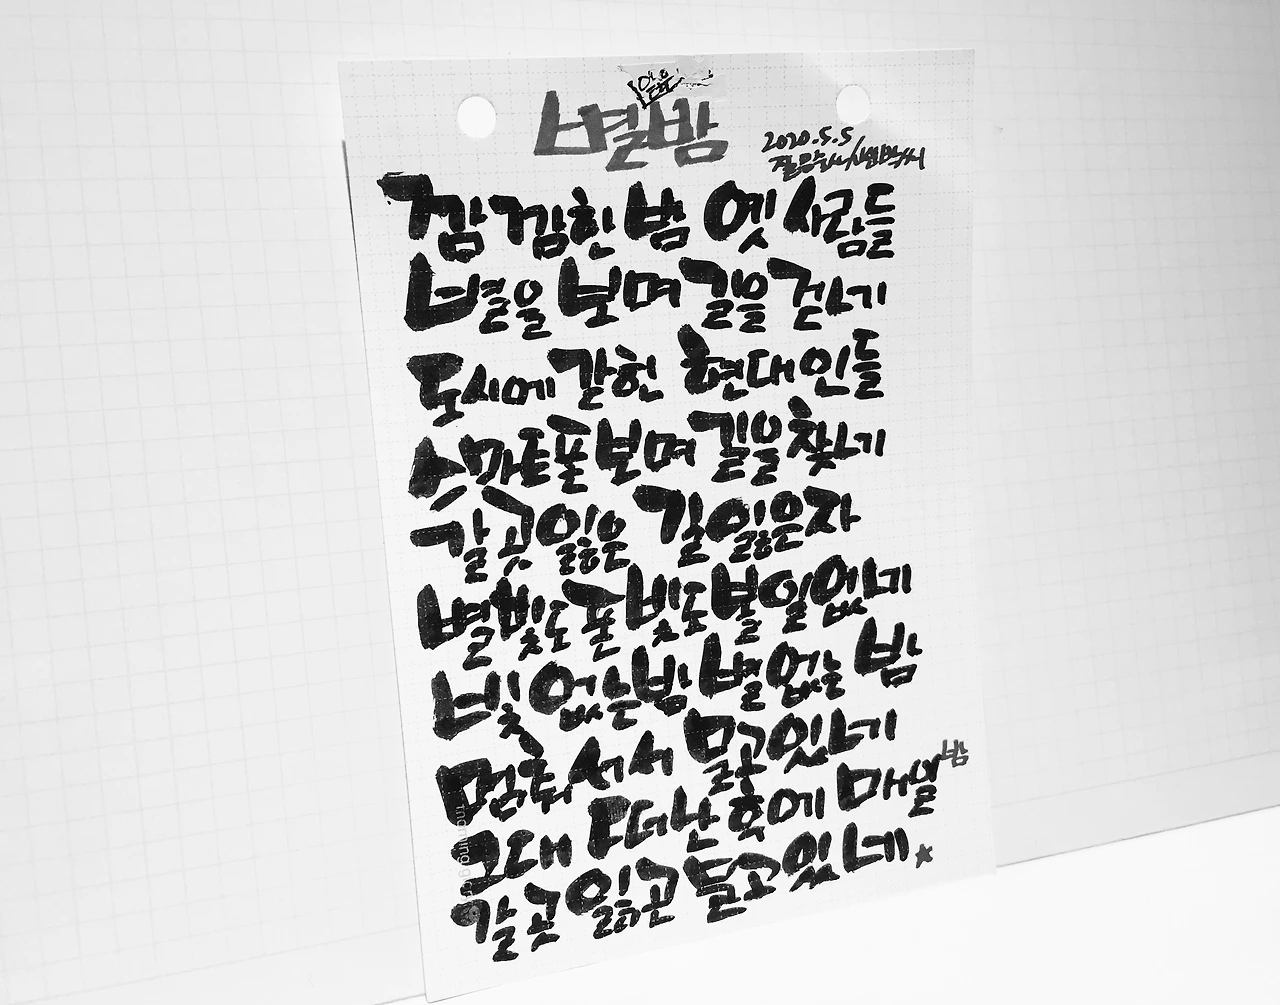 별밤
2020.5.5
깜깜한 밤 옛 사람들
별을 보며 길을 걷네
도시에 갇힌 현대인들
스마트폰 보며 길을 찾네
갈곳잃은 길잃은자
별빛도 폰빛도 볼일없네
빛 없는밤 별 없는 밤
멈춰서서 묻고있네
그대 떠난 후에 매일밤
갈곳 잃고 돌고있네
morning g